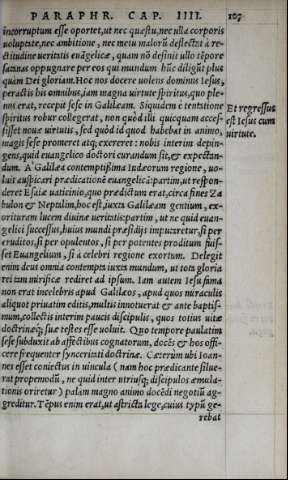 PARAPHR. CAP. IIII. 103
incorruptum esse oportet, ut nec quæstu, nec ulla corporis
uoluptate, nec ambitione, nec metu malorū deflectat à re-
ctitudine ueritatis euāgelicæ, quam nō desinit ullo tēpore
satanas oppugnare per eos qui mundum hūc diligūt plus
quàm Dei gloriam. Hoc nos docere uolens dominus Iesus,
peractis his omnibus, iam magna uirtute spiritus, quo ple-
nus erat, recepit sese in Galilæam. Siquidem è tentatione
spiritus robur collegerat, non quòd illi quicquam acces-
sisset nouæ uirtutis, sed quòd id quod habebat in animo,
magis sese promeret atq; exereret: nobis interim depin-
gens, quid euangelico doctori curandum sit, & expectan-
dum. A' Galilæa contemptissima Iudæorum regione, uo-
luit auspicari prædicationē euangelicā: partim, ut respon-
deret Esaiæ uaticinio, quo prædictum erat, circa fines Za
bulon & Neptalim, hoc est, iuxta Galilæam gentium, ex-
orituram lucem diuinæ ueritatis: partim, ut ne quid euan-
gelici successus, huius mundi præsidijs imputaretur, si per
eruditos, si per opulentos, si per potentes proditum fuis-
set Euangelium, si à celebri regione exortum. Delegit
enim deus omnia contempta iuxta mundum, ut tota gloria
rei tam mirificæ rediret ad ipsum. Iam autem Iesu fama
non erat incelebris apud Galilæos, apud quos miraculis
aliquot priuatim editis, multis innotuerat & ante baptis-
mum, collectis interim paucis discipulis, quos totius uitæ
doctrinæq; suæ testes esse uoluit. Quo tempore paulatim
sese subduxit ab affectibus cognatorum, docēs & hos offi-
cere frequenter synceritati doctrinæ. Cæterum ubi Ioan-
nes esset coniectus in uincula (nam hoc prædicante silue-
rat propemodū, ne quid inter utriusq; discipulos æmula-
tionis oriretur) palàm magno animo docēdi negotiū ag-
greditur. Tēpus enim erat, ut astricta lege, cuius typū ge-
rebat
Et regressus
est Iesus cum
uirtute.